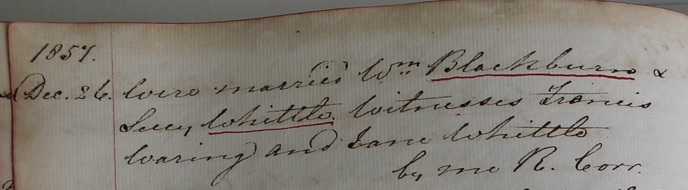 1857.
Dec. 26. Were married Wm Blackburn &
Lucy Whittle. Witnesses Francis
Waring and Jane Whittle
by me R. Corr.